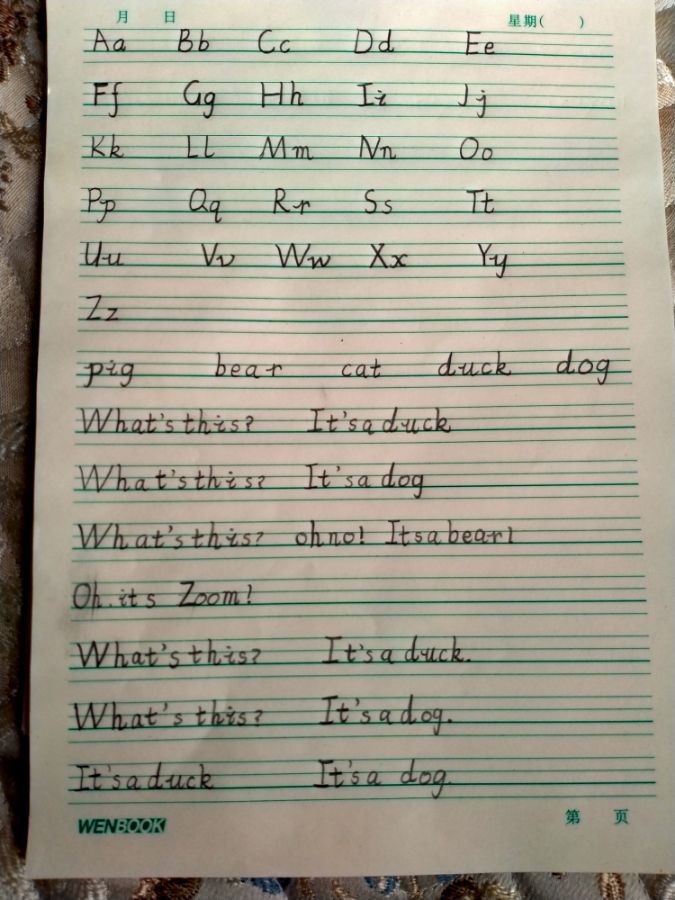 月 日 星期( )
Aa Bb Cc Dd Ee
Ff Gg Hh Ii Jj
Kk Ll Mm Nn Oo
Pp Qq Rr Ss Tt
Uu Vv Ww Xx Yy
Zz
pig bear cat duck dog
What's this? It's a duck
What's this? It's a dog
What's this? oh no! Its a bear!
Oh. its Zoom!
What's this? It's a duck.
What's this? It's a dog.
It's a duck It's a dog.
WENBOOK 第 页